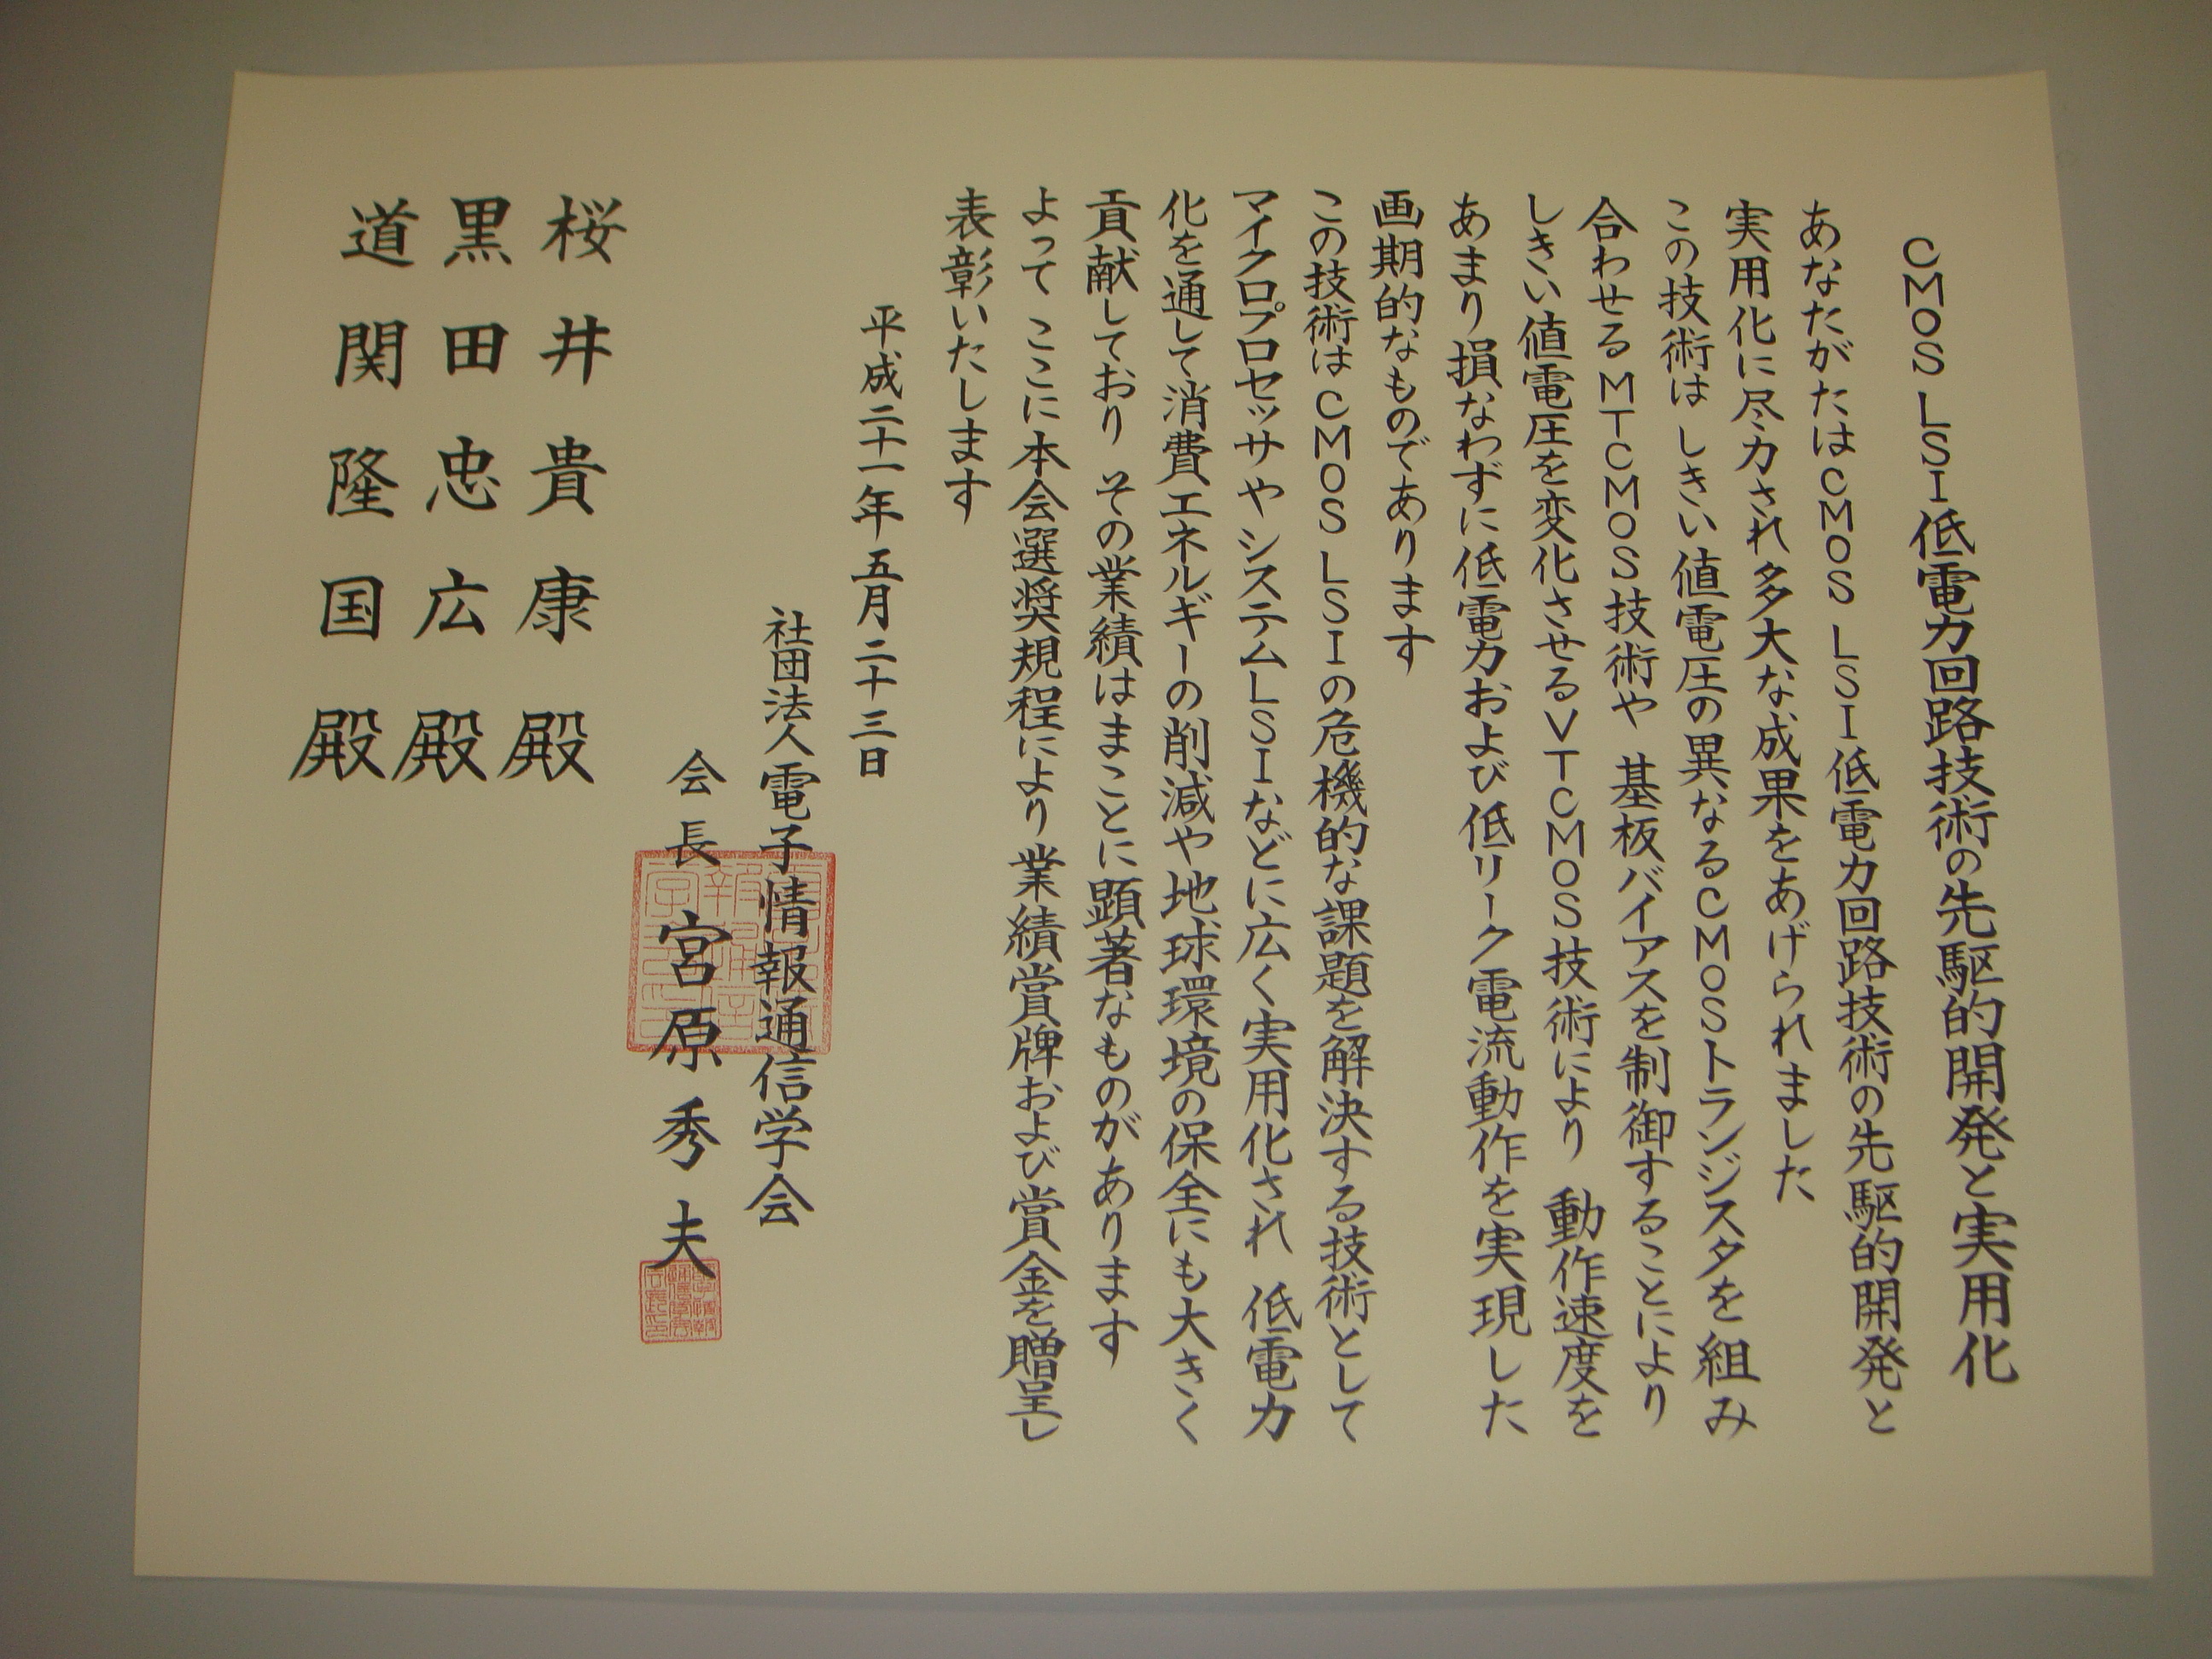 CMOS LSI低電力回路技術の先駆的開発と実用化
あなたがたはCMOS LSI低電力回路技術の先駆的開発と
実用化に尽力され多大な成果をあげられました
この技術は しきい値電圧の異なるCMOSトランジスタを組み
合わせるMTCMOS技術や 基板バイアスを制御することにより
しきい値電圧を変化させるVTCMOS技術により 動作速度を
あまり損なわずに低電力および低リーク電流動作を実現した
画期的なものであります
この技術はCMOS LSIの危機的な課題を解決する技術として
マイクロプロセッサやシステムLSIなどに広く実用化され 低電力
化を通して消費エネルギーの削減や地球環境の保全にも大きく
貢献しており その業績はまことに顕著なものがあります
よって ここに本会選奨規程により業績賞牌および賞金を贈呈し
表彰いたします
平成二十一年五月二十三日
社団法人電子情報通信学会
会長 宮原秀夫
桜井貴康殿
黒田忠広殿
道関隆国殿